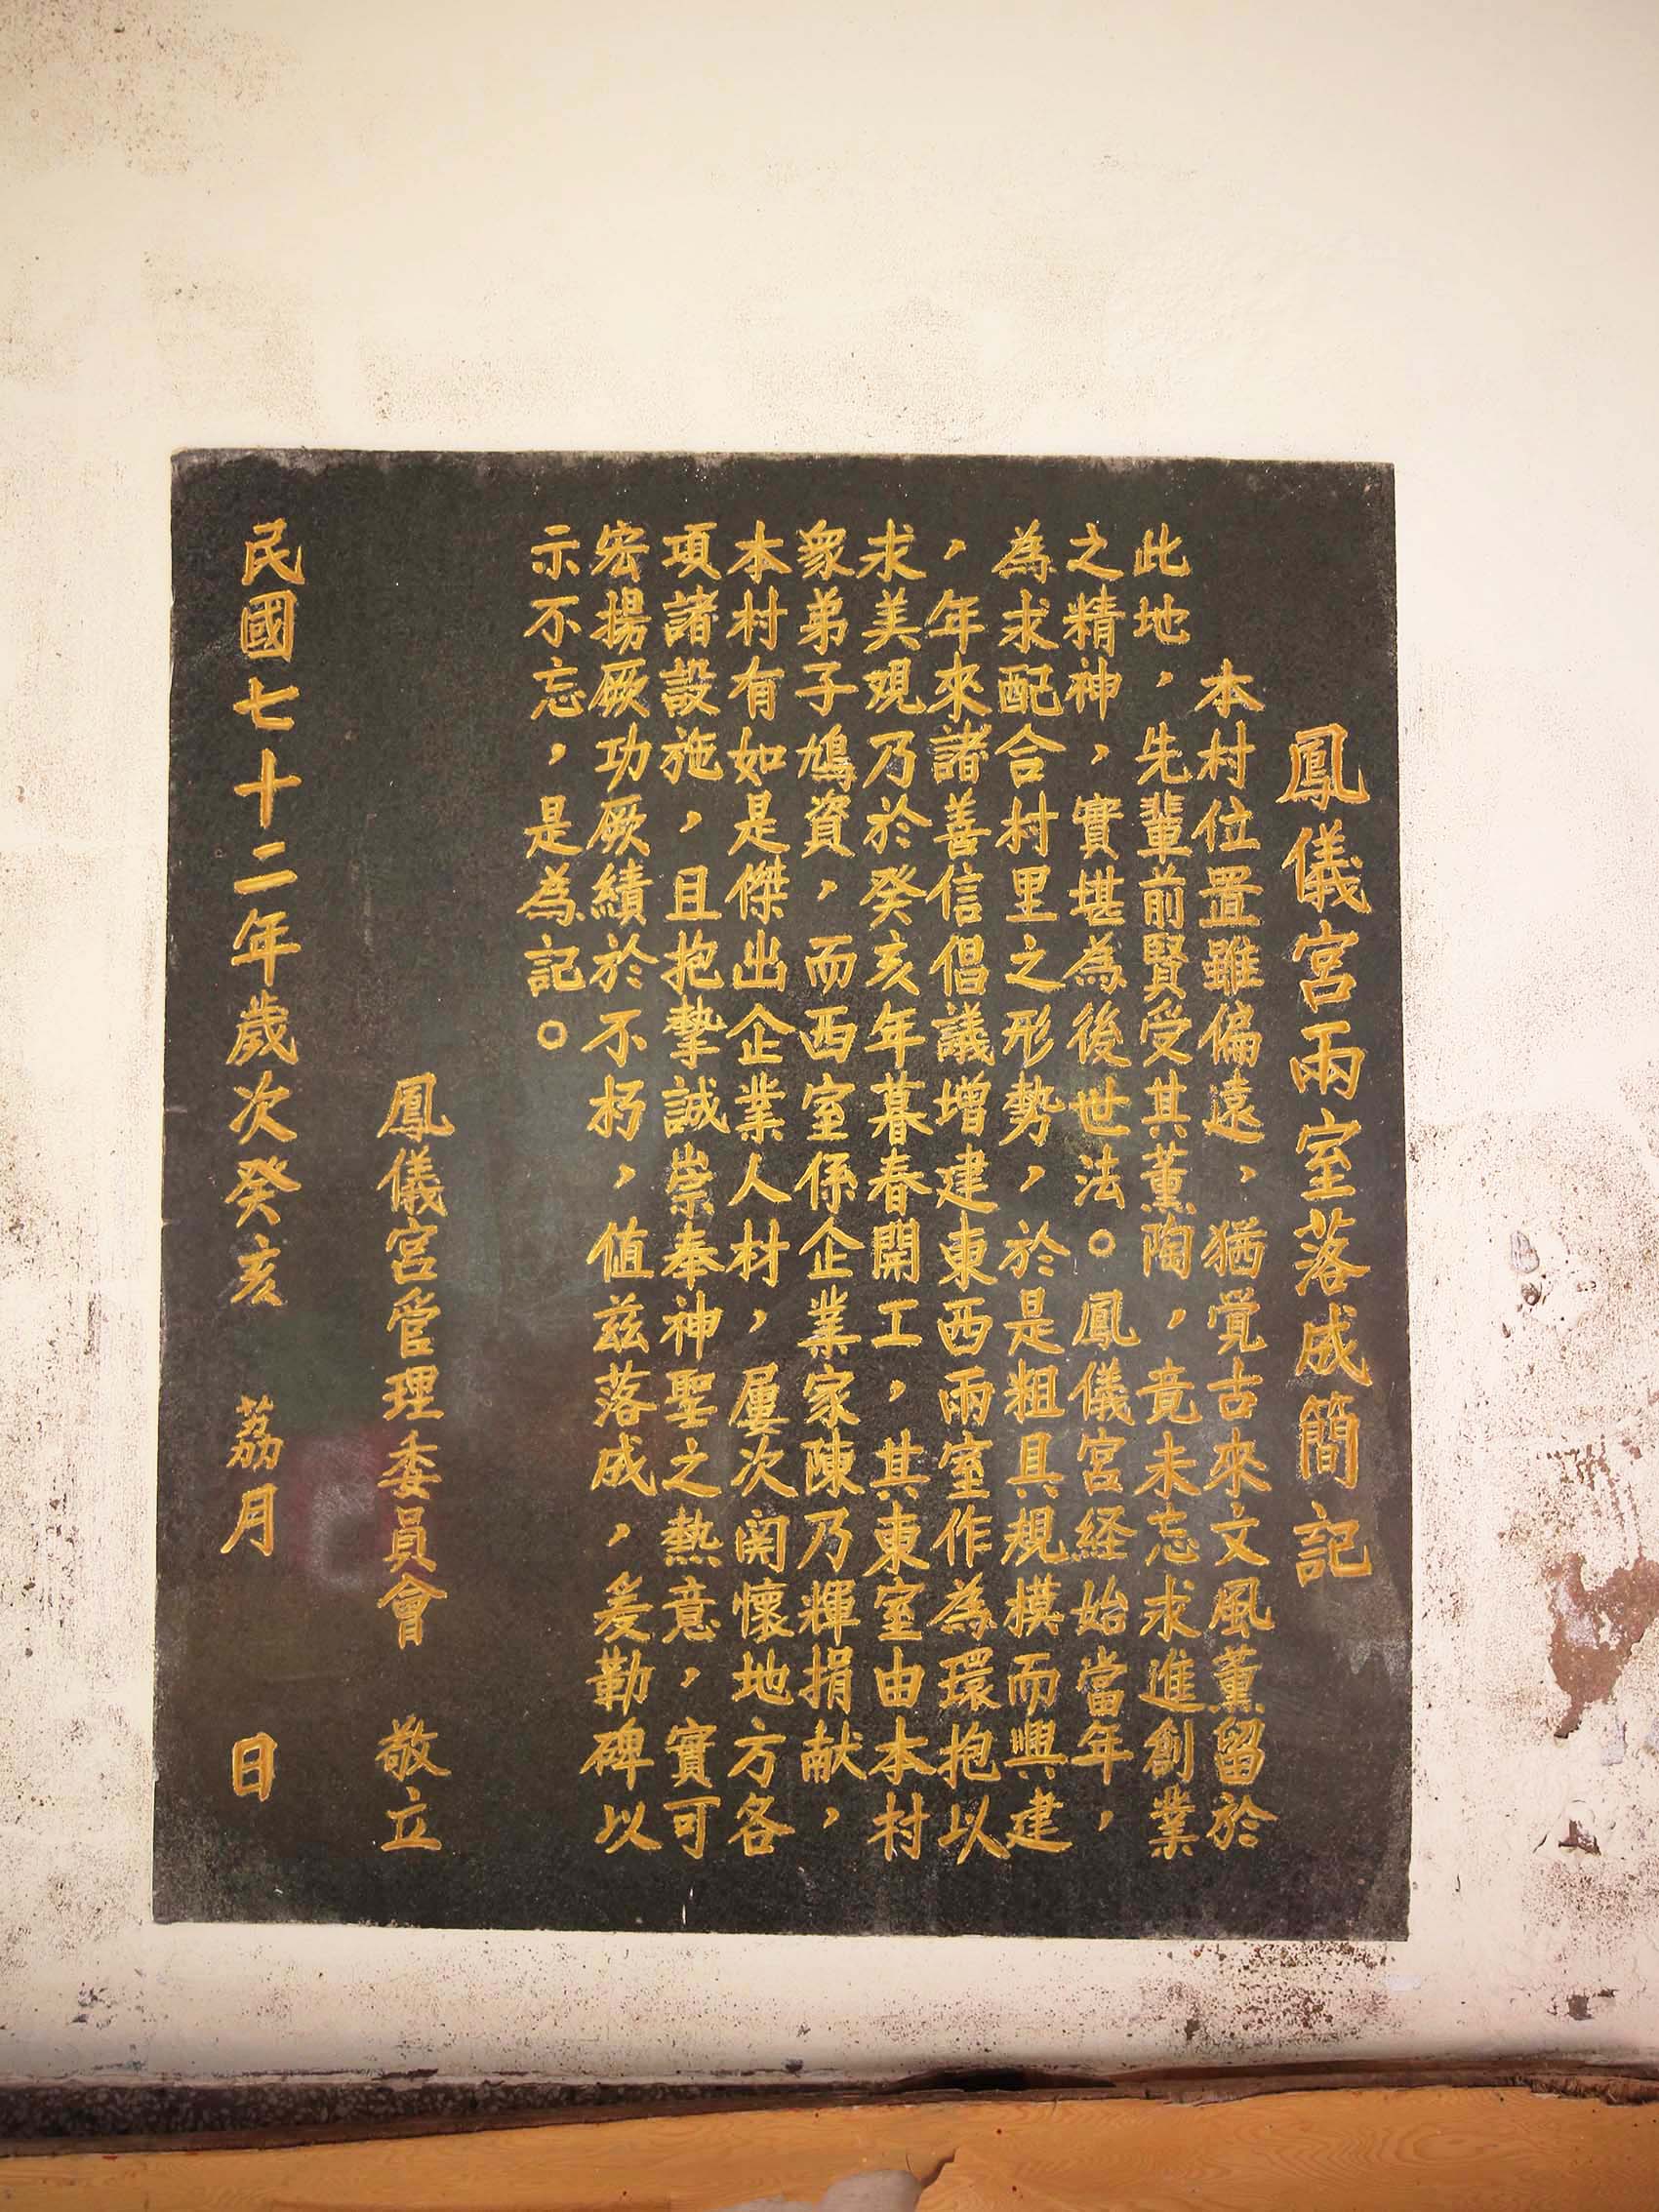 鳳儀宮兩室落成簡記
本村位置雖偏遠，猶覚古來文風薰留於
此地，先輩前賢受其薰陶，竟未忘求進創業
之精神，實堪為後世法。鳳儀宮経始當年，
為求配合村里之形勢，於是粗具規模而興建
，年來諸善信倡議增建東西兩室作為環抱以
求美观乃於癸亥年暮春開工，其東室由本村
衆弟子鳩資，而西室係企業家陳乃輝捐献，
本村有如是傑出企業人材，屢次関懷地方各
項諸設施，且抱摯誠崇奉神聖之熱意，實可
宏揚厥功厥績於不朽，值兹落成，爰勒碑以
示不忘，是為記。
鳳儀宮管理委員會 敬立
民國七十二年歲次癸亥 荔月 日